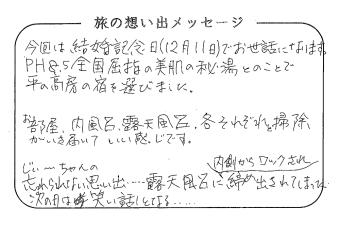 旅の想い出メッセージ
今回は結婚記念日(12月11日)でお世話になります。
PH8.5 全国屈指の美肌の秘湯とのことで
平の高房の宿を選びました。
お部屋、内風呂、露天風呂、各それぞれお掃除
がいき届いて いい感じです。
じぃ〜ちゃんの
内側からロックされ
忘れられない思い出……露天風呂に締め出されてしまった
次の日は笑い話しとなる……